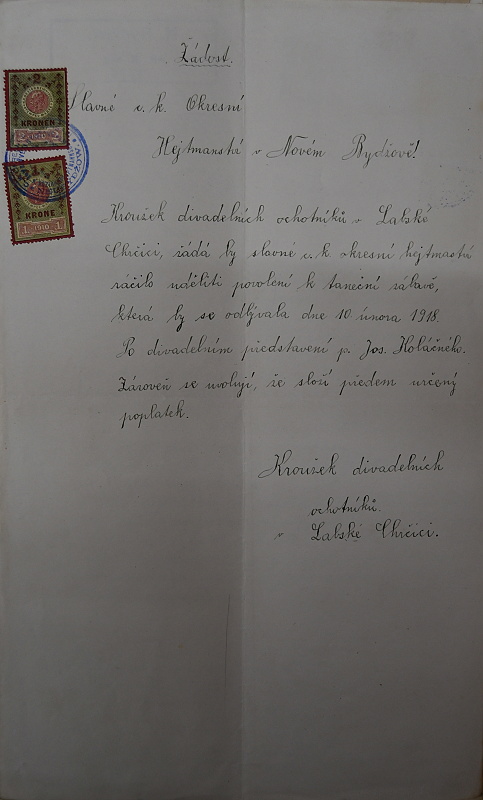 Žádost.
Slavné c. k. Okresní
Hejtmanství v Novém Bydžově!
2
KRONEN
2 1910 2
1
KRONE
1 1910 1
Kroužek divadelních ochotníků v Labské
Chrčici, žádá by slavné c. k. okresní hejtmanství
ráčilo uděliti povolení k taneční zábavě,
která by se odbývala dne 10. února 1918.
Po divadelním představení p. Jos. Holáčného.
Zároveň se uvolují, že složí předem určený
poplatek.
Kroužek divadelních
ochotníků
v Labské Chrčici.